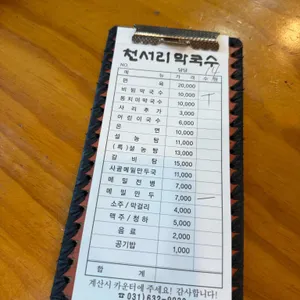 천서리막국수
NO.
메 뉴 가 격 수 량
편 육 20,000
비빔막국수 10,000
동치미막국수 10,000
사리추가 3,000
어린이국수 6,000
온 면 10,000
설 농 탕 11,000
(특) 설 농 탕 13,000
갈 비 탕 15,000
사골메밀만두국 11,000
메밀전병 7,000
메밀만두 7,000
소주 / 막걸리 4,000
맥주 / 청하 5,000
음 료 2,000
공기밥 1,000
합 계
계산시 카운터에 주세요! 감사합니다!
☎ 031) 632-